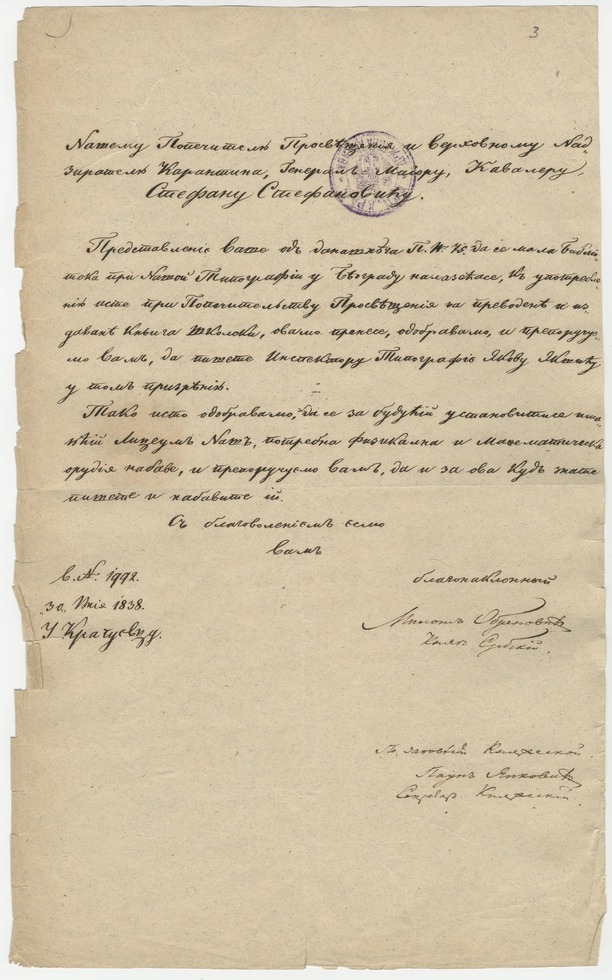 3
Нашему Попечителю Просвѣщенія и Верховному Над
зирателю Карантина, Генералъ Маіору, Кавалеру,
Стефану Стефановићу.
Представленіе Ваше одъ данашнѣга П. № 75. да се мала Библіо-
тека при Нашой Типографіи у Бѣограду налазећасе, къ употребле-
нію исте при Попечительству Просвѣщенія за преводенѣ и из-
даванѣ Кньига Школски, овамо пренесе, одобравамо, и препоручує-
мо Вамъ, да пишете Инспектору Типографіе Якову Якшићу
у томъ призрѣнію.
Тако исто одобравамо, да се за будућій установитисе има-
ћій Лицеумъ Нашъ, потребна физикална и Математическа
орудія набаве, и препоручуємо Вамъ, да и за ова кудъ знате
пишете и набавите ій.
Съ благоволеніемъ єсмо
Вамъ
В. №. 1992.
благонаклонный
30. 1838.
Милошъ Обреновићъ
У Крагуєвцу.
Князь Србскій.
По заповѣсти Княжеской
Паунъ Янковићъ
Секретаръ Княжескій.